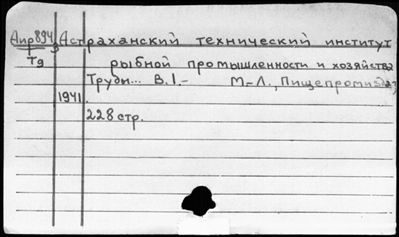 Аир894 Астраханский технический институт
Т9 рыбной промышленности и хозяйства
Труды... В.1.- М.-Л., Пищепромиздат,
1941.
228 стр.